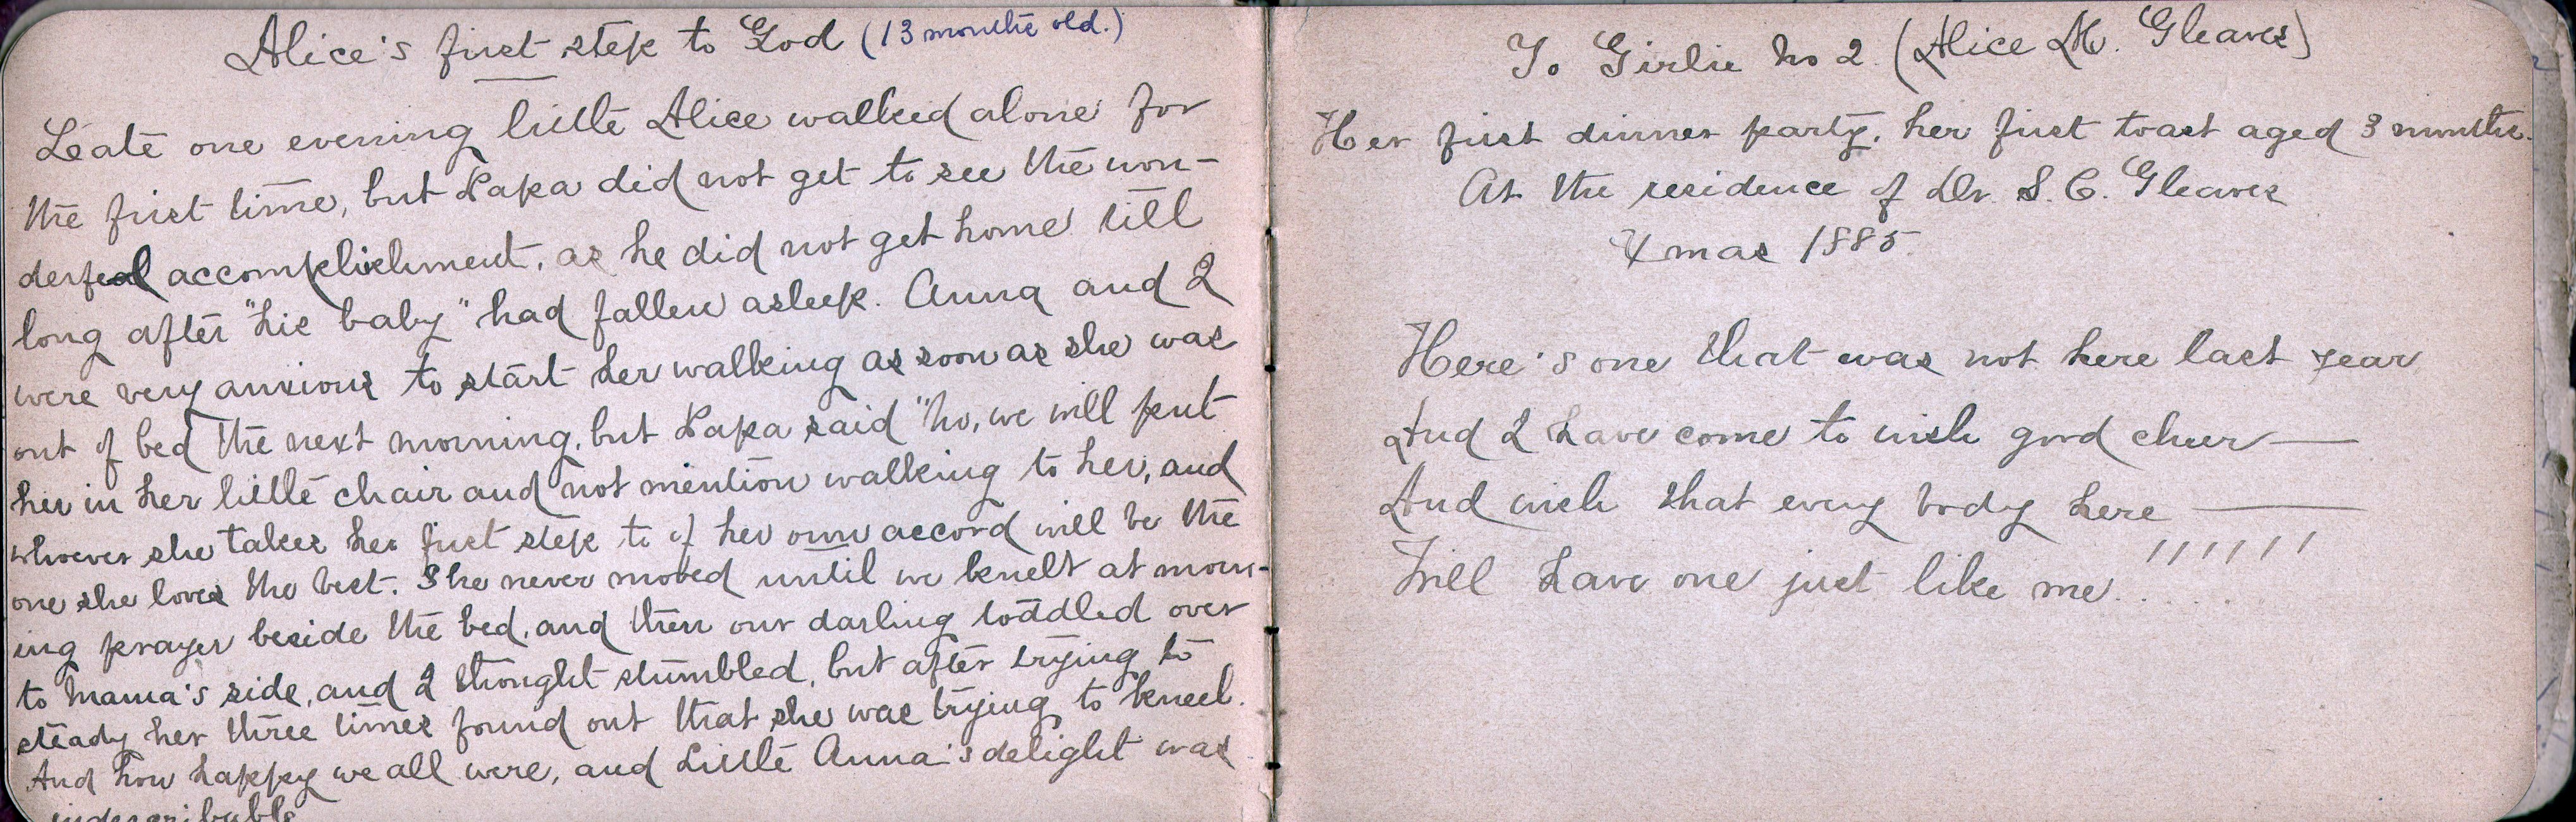 Alice's first step to God (13 months old.)
Late one evening little Alice walked alone for
the first time, but Papa did not get to see the won-
derful accomplishment, as he did not get home till
long after "his baby" had fallen asleep. Anna and I
were very anxious to start her walking as soon as she was
out of bed the next morning, but Papa said "No, we will put
her in her little chair and not mention walking to her, and
whoever she takes her first step to of her own accord will be the
one she loves the best. She never moved until we knelt at morn-
ing prayer beside the bed, and then our darling toddled over
to Mama's side, and I thought stumbled, but after trying to
steady her three times found out that she was trying to kneel.
And how happy we all were, and Little Anna's delight was
indescribable
To Girlie No 2. (Alice M. Gleaves)
Her first dinner party, her first toast aged 3 months.
At the residence of Dr. S. C. Gleaves
Xmas 1885.
Here's one that was not here last year
And I have come to wish good cheer —
And wish that every body here —
Will have one just like me. . . . . ! ! ! ! ! !